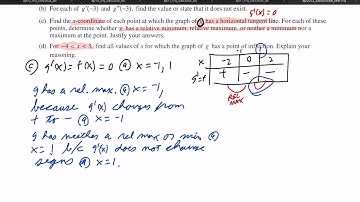 (b) For each of g'(−3) and g''(−3), find the value or state that it does not exist.
g'(x) = 0
(c) Find the x-coordinate of each point at which the graph of g has a horizontal tangent line. For each of these
points, determine whether g has a relative minimum, relative maximum, or neither a minimum nor a
maximum at the point. Justify your answers.
(d) For −4 < x < 3, find all values of x for which the graph of g has a point of inflection. Explain your
reasoning.
(c) g'(x) = f(x) = 0 @ x = -1, 1
x -2 0 2
g'=f + - -
REL MAX
g has a rel. max @ x = -1,
because g'(x) changes from
+ to - @ x = -1
g has neither a rel max or min @
x = 1 b/c g'(x) does not change
signs @ x = 1.